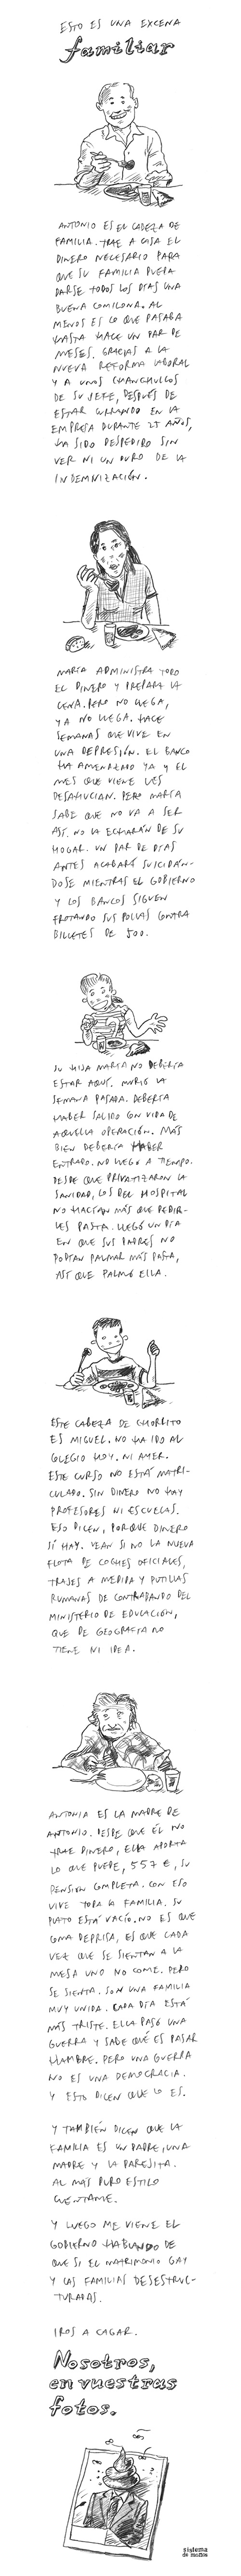 ESTO ES UNA EXCENA
familiar
ANTONIO ES EL CABEZA DE
FAMILIA. TRAE A CASA EL
DINERO NECESARIO PARA
QUE SU FAMILIA PUEDA
DARSE TODOS LOS DÍAS UNA
BUENA COMILONA. AL
MENOS ES LO QUE PASABA
HASTA HACE UN PAR DE
MESES. GRACIAS A LA
NUEVA REFORMA LABORAL
Y A UNOS CHANCHULLOS
DE SU JEFE, DESPUÉS DE
ESTAR CURRANDO EN LA
EMPRESA DURANTE 25 AÑOS,
HA SIDO DESPEDIDO SIN
VER NI UN DURO DE LA
INDEMNIZACIÓN.
MARÍA ADMINISTRA TODO
EL DINERO Y PREPARA LA
CENA. PERO NO LLEGA,
YA NO LLEGA. HACE
SEMANAS QUE VIVE EN
UNA DEPRESIÓN. EL BANCO
HA AMENAZADO YA Y EL
MES QUE VIENE LES
DESAHUCIAN. PERO MARÍA
SABE QUE NO VA A SER
ASÍ. NO LA ECHARÁN DE SU
HOGAR. UN PAR DE DÍAS
ANTES ACABARÁ SUICIDÁN-
DOSE MIENTRAS EL GOBIERNO
Y LOS BANCOS SIGUEN
FROTANDO SUS POLLAS CONTRA
BILLETES DE 500.
SU HIJA MARTA NO DEBERÍA
ESTAR AQUÍ. MURIÓ LA
SEMANA PASADA. DEBERÍA
HABER SALIDO CON VIDA DE
AQUELLA OPERACIÓN. MÁS
BIEN DEBERÍA HABER
ENTRADO. NO LLEGÓ A TIEMPO.
DESDE QUE PRIVATIZARON LA
SANIDAD, LOS DEL HOSPITAL
NO HACÍAN MÁS QUE PEDIR-
LES PASTA. LLEGÓ UN DÍA
EN QUE SUS PADRES NO
PODÍAN PALMAR MÁS PASTA,
ASÍ QUE PALMÓ ELLA.
ESTE CABEZA DE CHORLITO
ES MIGUEL. NO HA IDO AL
COLEGIO HOY. NI AYER.
ESTE CURSO NO ESTÁ MATRI-
CULADO. SIN DINERO NO HAY
PROFESORES NI ESCUELAS.
ESO DICEN, PORQUE DINERO
SÍ HAY. VEAN SI NO LA NUEVA
FLOTA DE COCHES OFICIALES,
TRAJES A MEDIDA Y PUTILLAS
RUMANAS DE CONTRABANDO DEL
MINISTERIO DE EDUCACIÓN,
QUE DE GEOGRAFÍA NO
TIENE NI IDEA.
ANTONIA ES LA MADRE DE
ANTONIO. DESDE QUE ÉL NO
TRAE DINERO, ELLA APORTA
LO QUE PUEDE, 557 €, SU
PENSIÓN COMPLETA. CON ESO
VIVE TODA LA FAMILIA. SU
PLATO ESTÁ VACÍO. NO ES QUE
COMA DEPRISA, ES QUE CADA
VEZ QUE SE SIENTAN A LA
MESA UNO NO COME. PERO
SE SIENTA. SON UNA FAMILIA
MUY UNIDA. CADA DÍA ESTÁ
MÁS TRISTE. ELLA PASÓ UNA
GUERRA Y SABE QUÉ ES PASAR
HAMBRE. PERO UNA GUERRA
NO ES UNA DEMOCRACIA.
Y ESTO DICEN QUE LO ES.
Y TAMBIÉN DICEN QUE LA
FAMILIA ES UN PADRE, UNA
MADRE Y LA PAREJITA.
AL MÁS PURO ESTILO
CUÉNTAME.
Y LUEGO ME VIENE EL
GOBIERNO HABLANDO DE
QUE SI EL MATRIMONIO GAY
Y LAS FAMILIAS DESESTRUC-
TURADAS.
IROS A CAGAR.
Nosotros,
en vuestras
fotos.
sistema
de monos